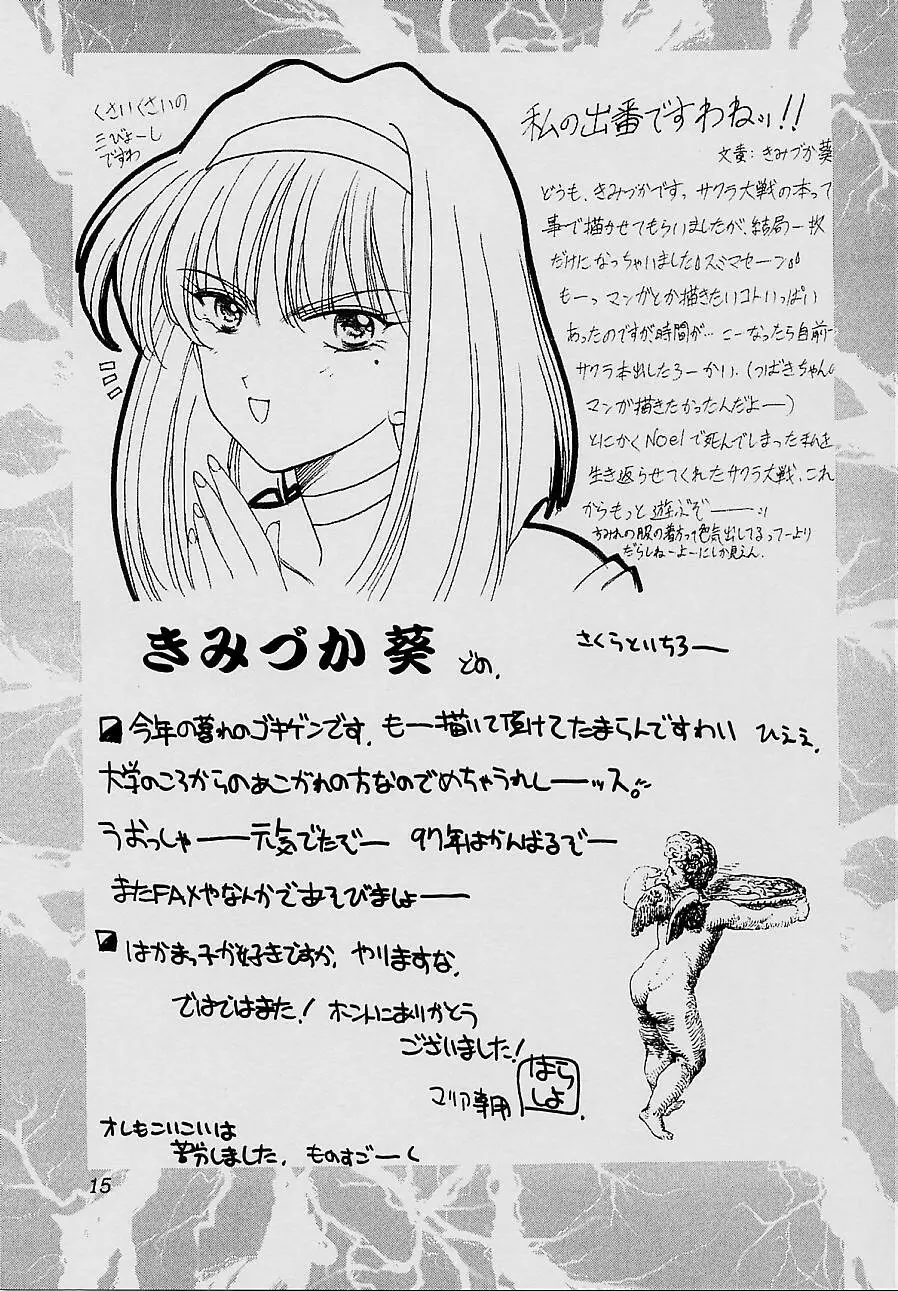 くさいくさいの
三びょーし
ですわ
私の出番ですわねッ!!
文責:きみづか葵
どうも、きみづかです。サクラ大戦の本って
事で描かせてもらいましたが、結局一枚
だけになっちゃいました。スミマセーン。
もーっマンガとか描きたいコトいっぱい
あったのですが、時間が… こーなったら自前で
サクラ本出したろーかい、(つばきちゃんの
マンガ描きたかったんだよー)
とにかくNoelで死んでしまった私を
生き返らせてくれたサクラ大戦、これ
からもっと遊ぶぞーーッ
すみれの服の着方って色気出してるってーより
だらしねーよーにしか見えん.
きみづか葵 どの.
さくらといちろー
今年の暮れのゴキゲンです. もー描いて頂けてたまらんですわい ひぇぇ.
大学のころからのあこがれの方なのでめちゃうれしーーッス。
うおっしゃーー元気でたぞー 97年はがんばるぞー
またFAXやなんかであそびましょーー
はかまっ子が好きですか. やりますな.
ではではまた! ホントにありがとう
ございました!
マリア専用 はらしょ.
オレもこいこいは
苦労しました. ものすごーく
15